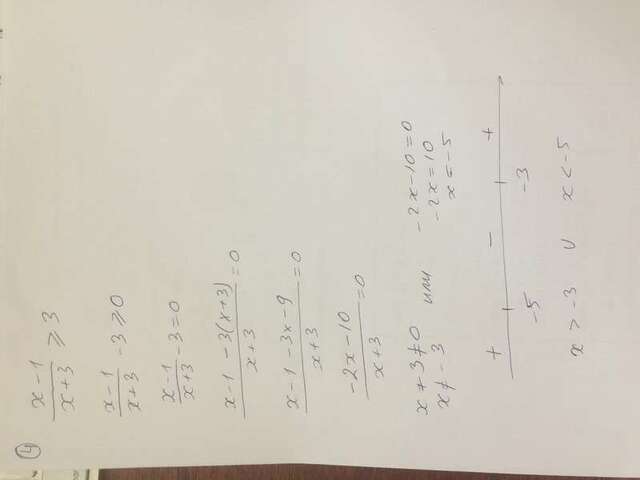 4
x-1/x+3 ⩾ 3
x-1/x+3 -3⩾0
x-1/x+3 -3=0
x-1 -3(x+3)/x+3 =0
x-1-3x-9/x+3 =0
-2x-10/x+3 =0
x+3≠0 или -2x-10=0
x≠-3 -2x=10
x=-5
+ - +
-5 -3
x > -3 ∪ x < -5